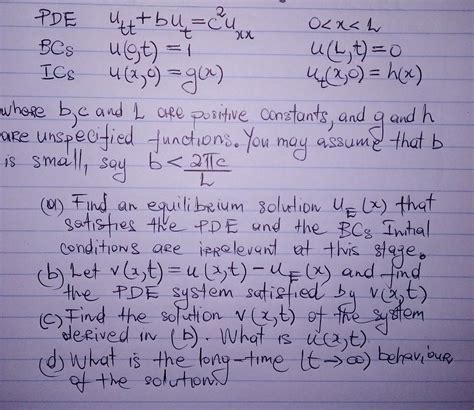 PDE u_tt + bu_t = c²u_xx 0<x<L
BCs u(0,t) = 1 u(L,t) = 0
ICs u(x,0) = g(x) u_t(x,0) = h(x)
where b,c and L are positive constants, and g and h
are unspecified functions. You may assume that b
is small, say b < 2πc/L
(a) Find an equilibrium solution u_E(x) that
satisfies the PDE and the BCs Initial
conditions are irrelevant at this stage.
(b) Let v(x,t) = u(x,t) - u_E(x) and find
the PDE system satisfied by v(x,t)
(c) Find the solution v(x,t) of the system
derived in (b). What is u(x,t)
(d) What is the long-time (t→∞) behaviour
of the solution